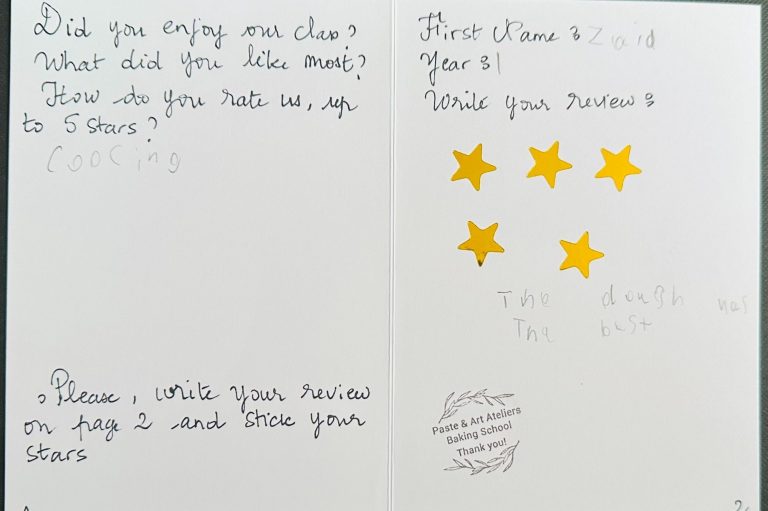 Did you enjoy our class?
What did you like most?
How do you rate us, up
to 5 stars?
Coocing
Please, write your review
on page 2 and stick your
stars
First Name : Ziaid
Year : 1
Write your review :
The dough was
The best
Paste & Art Ateliers
Baking School
Thank you!
2